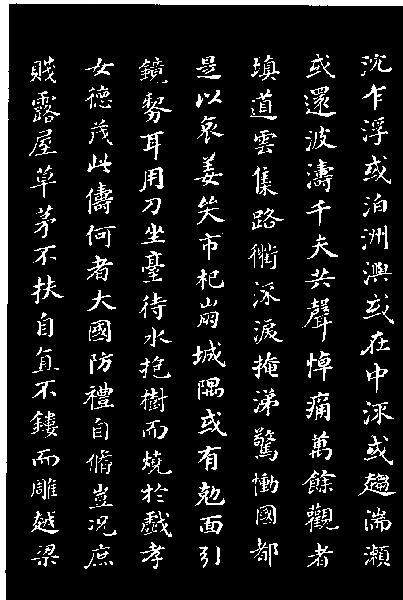 沈乍浮或泊洲嶼或在中流或趨湍瀨
或還波濤千夫共聲悼痛萬餘觀者
填道雲集路衢流淚掩涕驚慟國都
是以哀姜哭市杞崩城隅或有剋面引
鏡剺耳用刀坐臺待水抱樹而燒於戲孝
女德茂此儔何者大國防禮自脩豈况庶
賤露屋草茅不扶自直不鏤而雕越梁